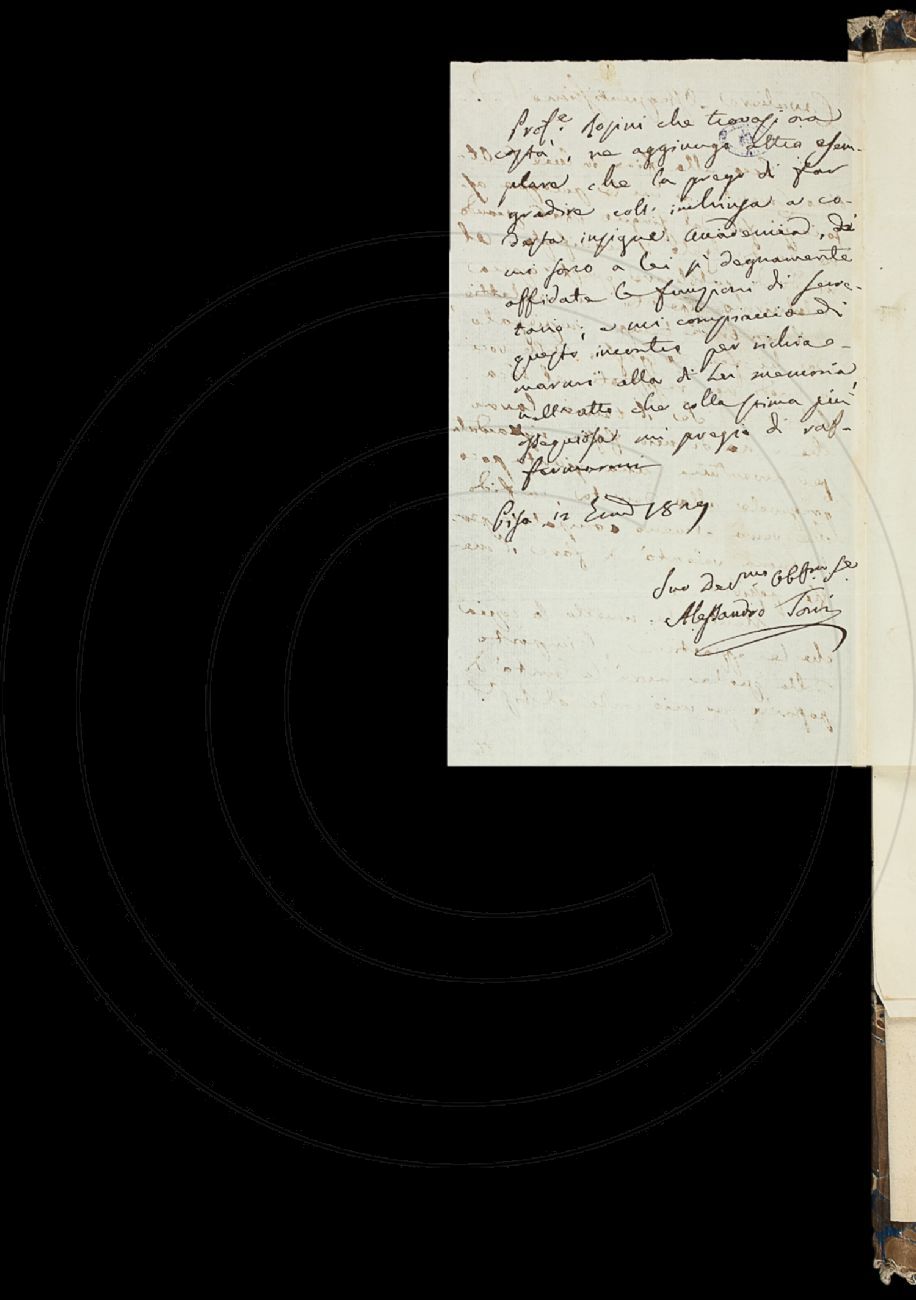 Prof.e Rosini che trovasi ora
costà, ne aggiungo altro esem-
plare che la prego di far
gradire coll' inchiusa a co-
desta insigne Accademia, di
cui sono a lei sì degnamente
affidate le funzioni di Segre-
tario; e mi compiaccio di
questo incontro per richia-
marmi alla di Lei memoria,
nell'atto che colla stima più
ossequiosa mi pregio di raf-
fermarmi
Pisa 12 1829
Suo Devmo Obbmo Se.
Alessandro Torri